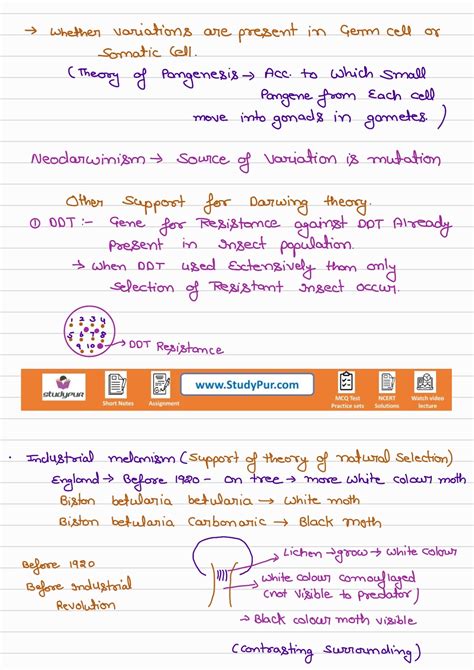 → Whether variations are present in Germ cell or
Somatic Cell.
(Theory of Pangenesis → Acc. to which Small
Pangene from Each cell
move into gonads in gametes.)
Neodarwinism → Source of Variation is mutation
Other Support for Darwing theory.
① DDT :- Gene for Resistance against DDT Already
Present in Insect population.
→ When DDT used Extensively than only
Selection of Resistant Insect occur.
1 2 3 4
5 6 7 8
9 10
→ DDT Resistance
studypur
Short Notes
Assignment
www.StudyPur.com
MCQ Test
Practice sets
NCERT
Solutions
Watch video
lecture
• Industrial melanism (Support of theory of natural Selection)
England → Before 1920 - On tree → more White colour moth
Biston betularia betularia → White moth
Biston betularia Carbonaric → Black moth
Before 1920
Before Industrial
Revolution
Lichen → grow → White colour
White colour camouflaged
(not visible to predator)
→ Black colour moth visible
(Contrasting surrounding)